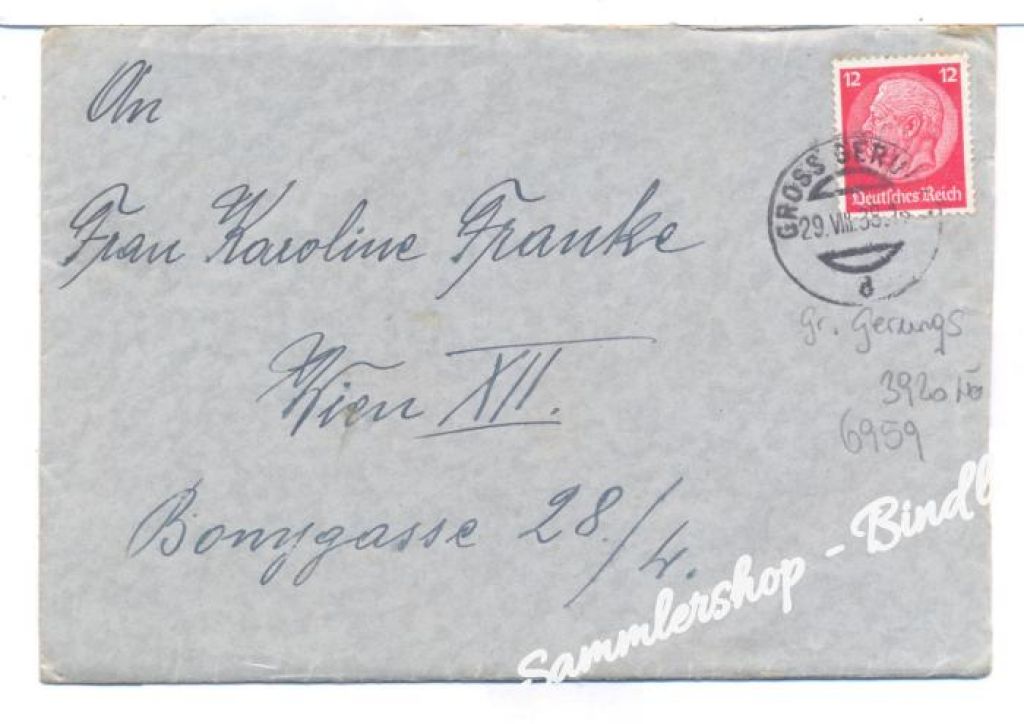 An
12 12
Deutsches Reich
Frau Karoline Franke
GROSS GERU
29.VIII.39.
d
gr. Gerungs
Wien XII.
3920 Nö
6959
Bonygasse 28./4.
Sammlershop - Bindl